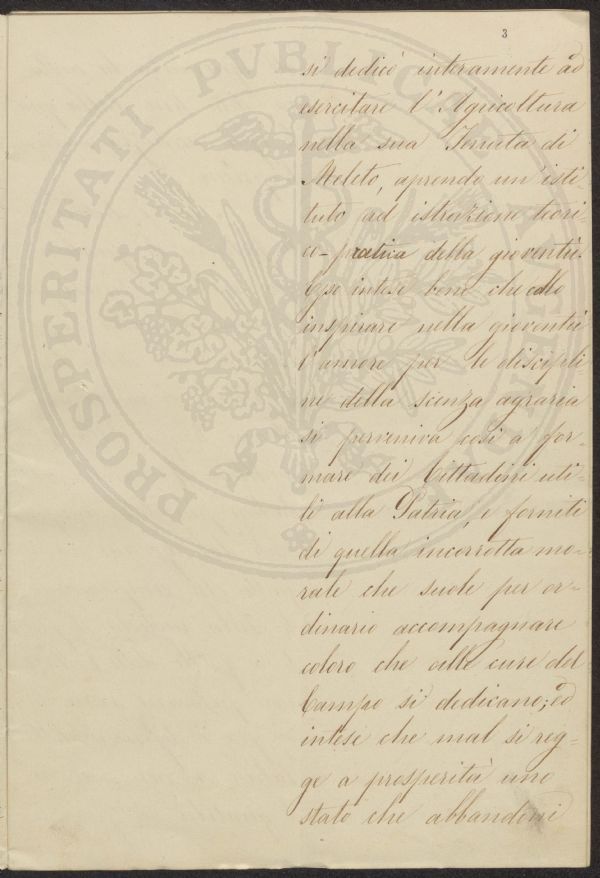 3
si dedicò interamente ad
esercitare l'Agricoltura
nella sua Tenuta di
Meleto, aprendo un'isti-
tuto ad istruzione teori-
co-pratica della gioventù.
Esso intese bene che collo
inspirare nella gioventù
l'amore per le discipli
ne della scienza agraria
si perveniva così a for-
mare dei Cittadini uti-
li alla Patria, e forniti
di quella incorrotta mo-
rale che suole per or-
dinario accompagnare
coloro che alle cure del
Campo si dedicano; ed
intese che mal si reg-
ge a prosperità uno
stato che abbandoni
PROSPERITATI PVBLICAE